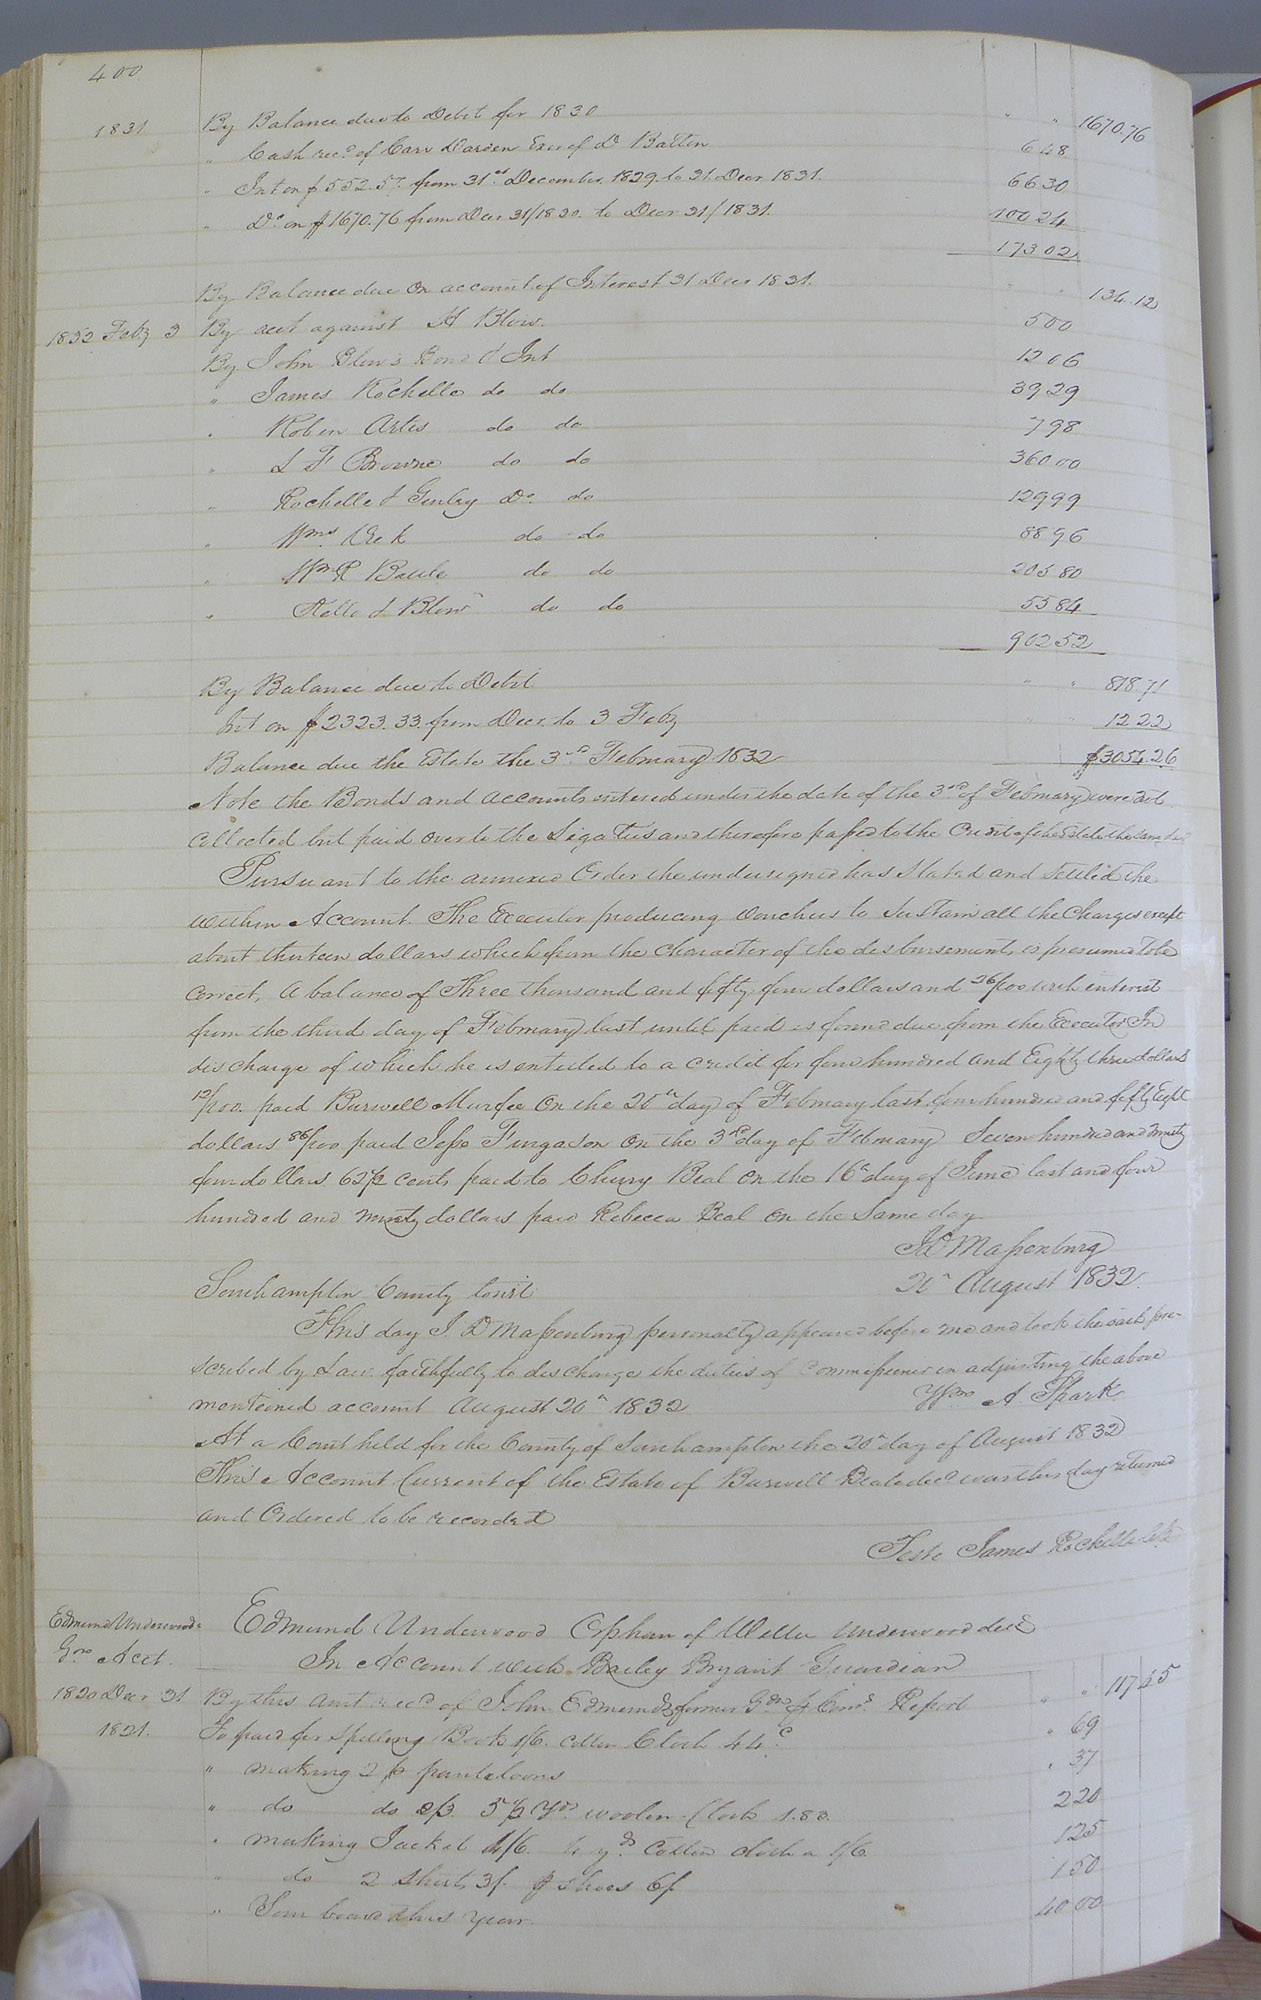 400
1831 By Balance due to Debit for 1830 " " 1670.76
" Cash recd of Carr Darden Exor of D Batten 6 48
" Int on $552.57. from 31st December 1829. to 31. Decr 1831. 66 30
" Do on $1670.76 from Decr 31/1830. to Decr 31/1831. 100 24
173 02
By Balance due on account of Interest 31 Decr 1831. " " 134.12
1832 Feby 3 By acct against H Blow. 5 00
By John Blow's Bond & Int 12 06
" James Rochelle do do 39 29
" Robin Artis do do 7 98
" L F Browne do do 360 00
" Rochelle & Gurley Do do 129 99
" Wms do do 88 96
" Wm R do do 203 80
" & Blow do do 55 84
902 52
By Balance due to Debit " " 818.71
Int on $2323.33. from Decr. to 3 Feby " " 12 22
Balance due the Estate the 3rd February 1832 $3054.26
Note the Bonds and accounts entered under the date of the 3rd of February were not
collected but paid over to the Legatees and therefore passed to the Credit of the Estate the same day
Pursuant to the annexed Order the undersigned has Stated and Settled the
within Account. The Executor producing Vouchers to Sustain all the Charges except
about thirteen dollars which from the character of the disbursements is presumed to be
correct, a balance of Three thousand and fifty four dollars and 26/100 with interest
from the third day of February last until paid is found due from the Executor In
discharge of which he is entitled to a credit for four hundred and Eighty three dollars
/100. paid Burwell Murfee On the 20th day of February last four hundred and fifty Eight
dollars 86/100 paid Jesse Turgason On the 3rd day of February Seven hundred and ninety
four dollars 62½ cents paid to Cherry Beal on the 16th day of June last and four
hundred and ninety dollars paid Rebecca Beal on the Same day
JD Massenburg
20th August 1832.
Southampton County Court:
This day J. D Massenburg personally appeared before me and took the oath pre-
scribed by Law faithfully to discharge the duties of Commissioner in adjusting the above
mentioned account August 20th 1832 Wm A Spark
At a Court held for the County of Southampton the 20th day of August 1832
This Account Current of the Estate of Burwell Beale decd was this day returned
and Ordered to be recorded
Teste James Rochelle Clk
Edmund Underwoods Edmund Underwood Orphan of Willie Underwood decd
Gdn Acct. In Account with Bailey Bryant Guardian
1820 Decr 31 By this amt recd of John Edmunds former Gdn Coms Report " " 117 45
1821. To paid for Spelling Book 1/6. cotton Cloth 44c " 69
" making 2 pr pantaloons " 37
" do do 2/3. 5½ Yds woolen Cloth 1.83. 2 20
" making Jacket 1/6. 4 yds Cotton cloth a 1/6 1 25
" do 2 Shirts 3/. shoes 6/ 1 50
" Your board this year. 40 00